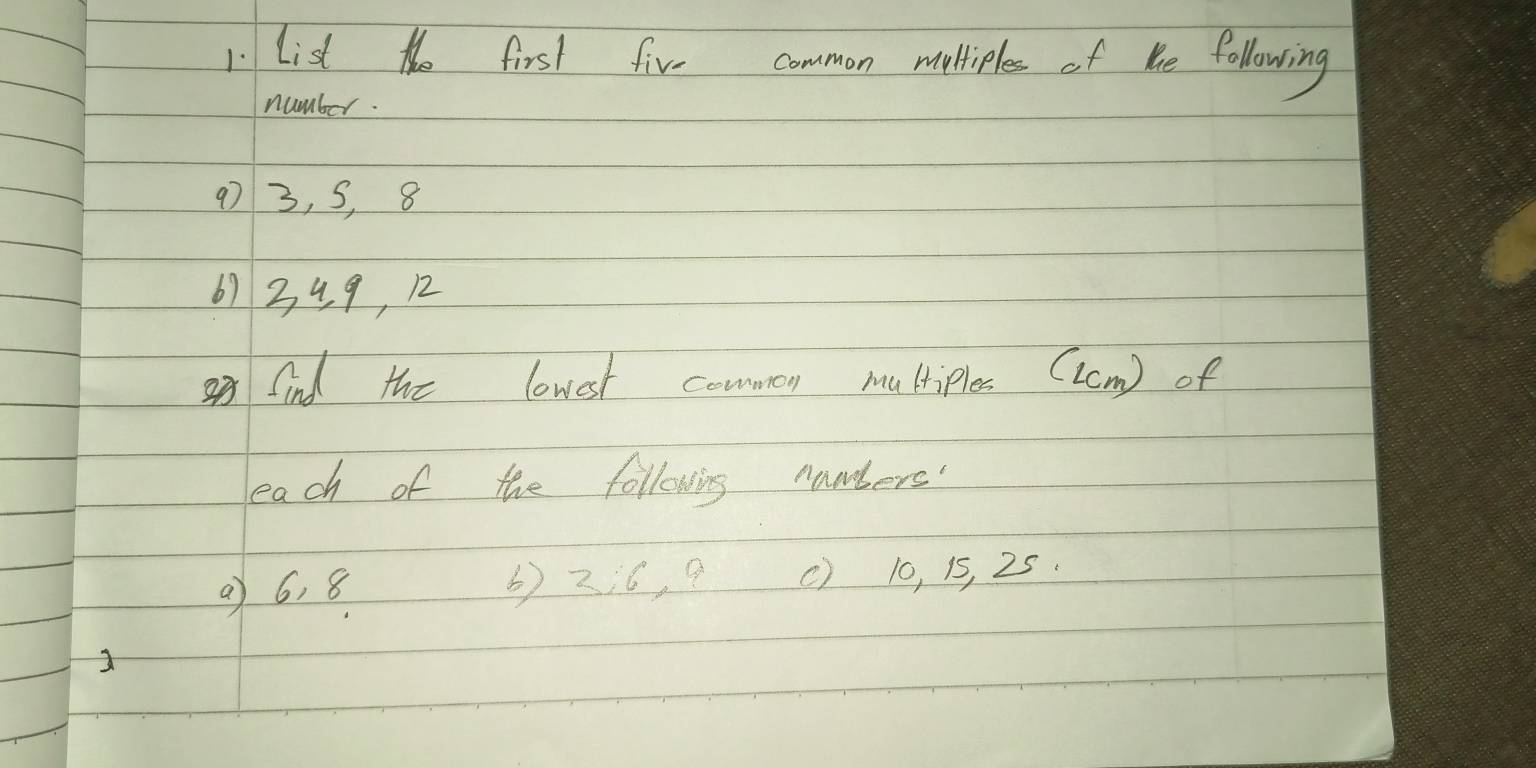 1. List the first five common multiples of the following
number.
a) 3, 5, 8
b) 2, 4, 9, 12
2) find the lowest common multiples (Lcm) of
each of the following numbers'
a) 6, 8. b) 2, 6, 9 c) 10, 15, 25.